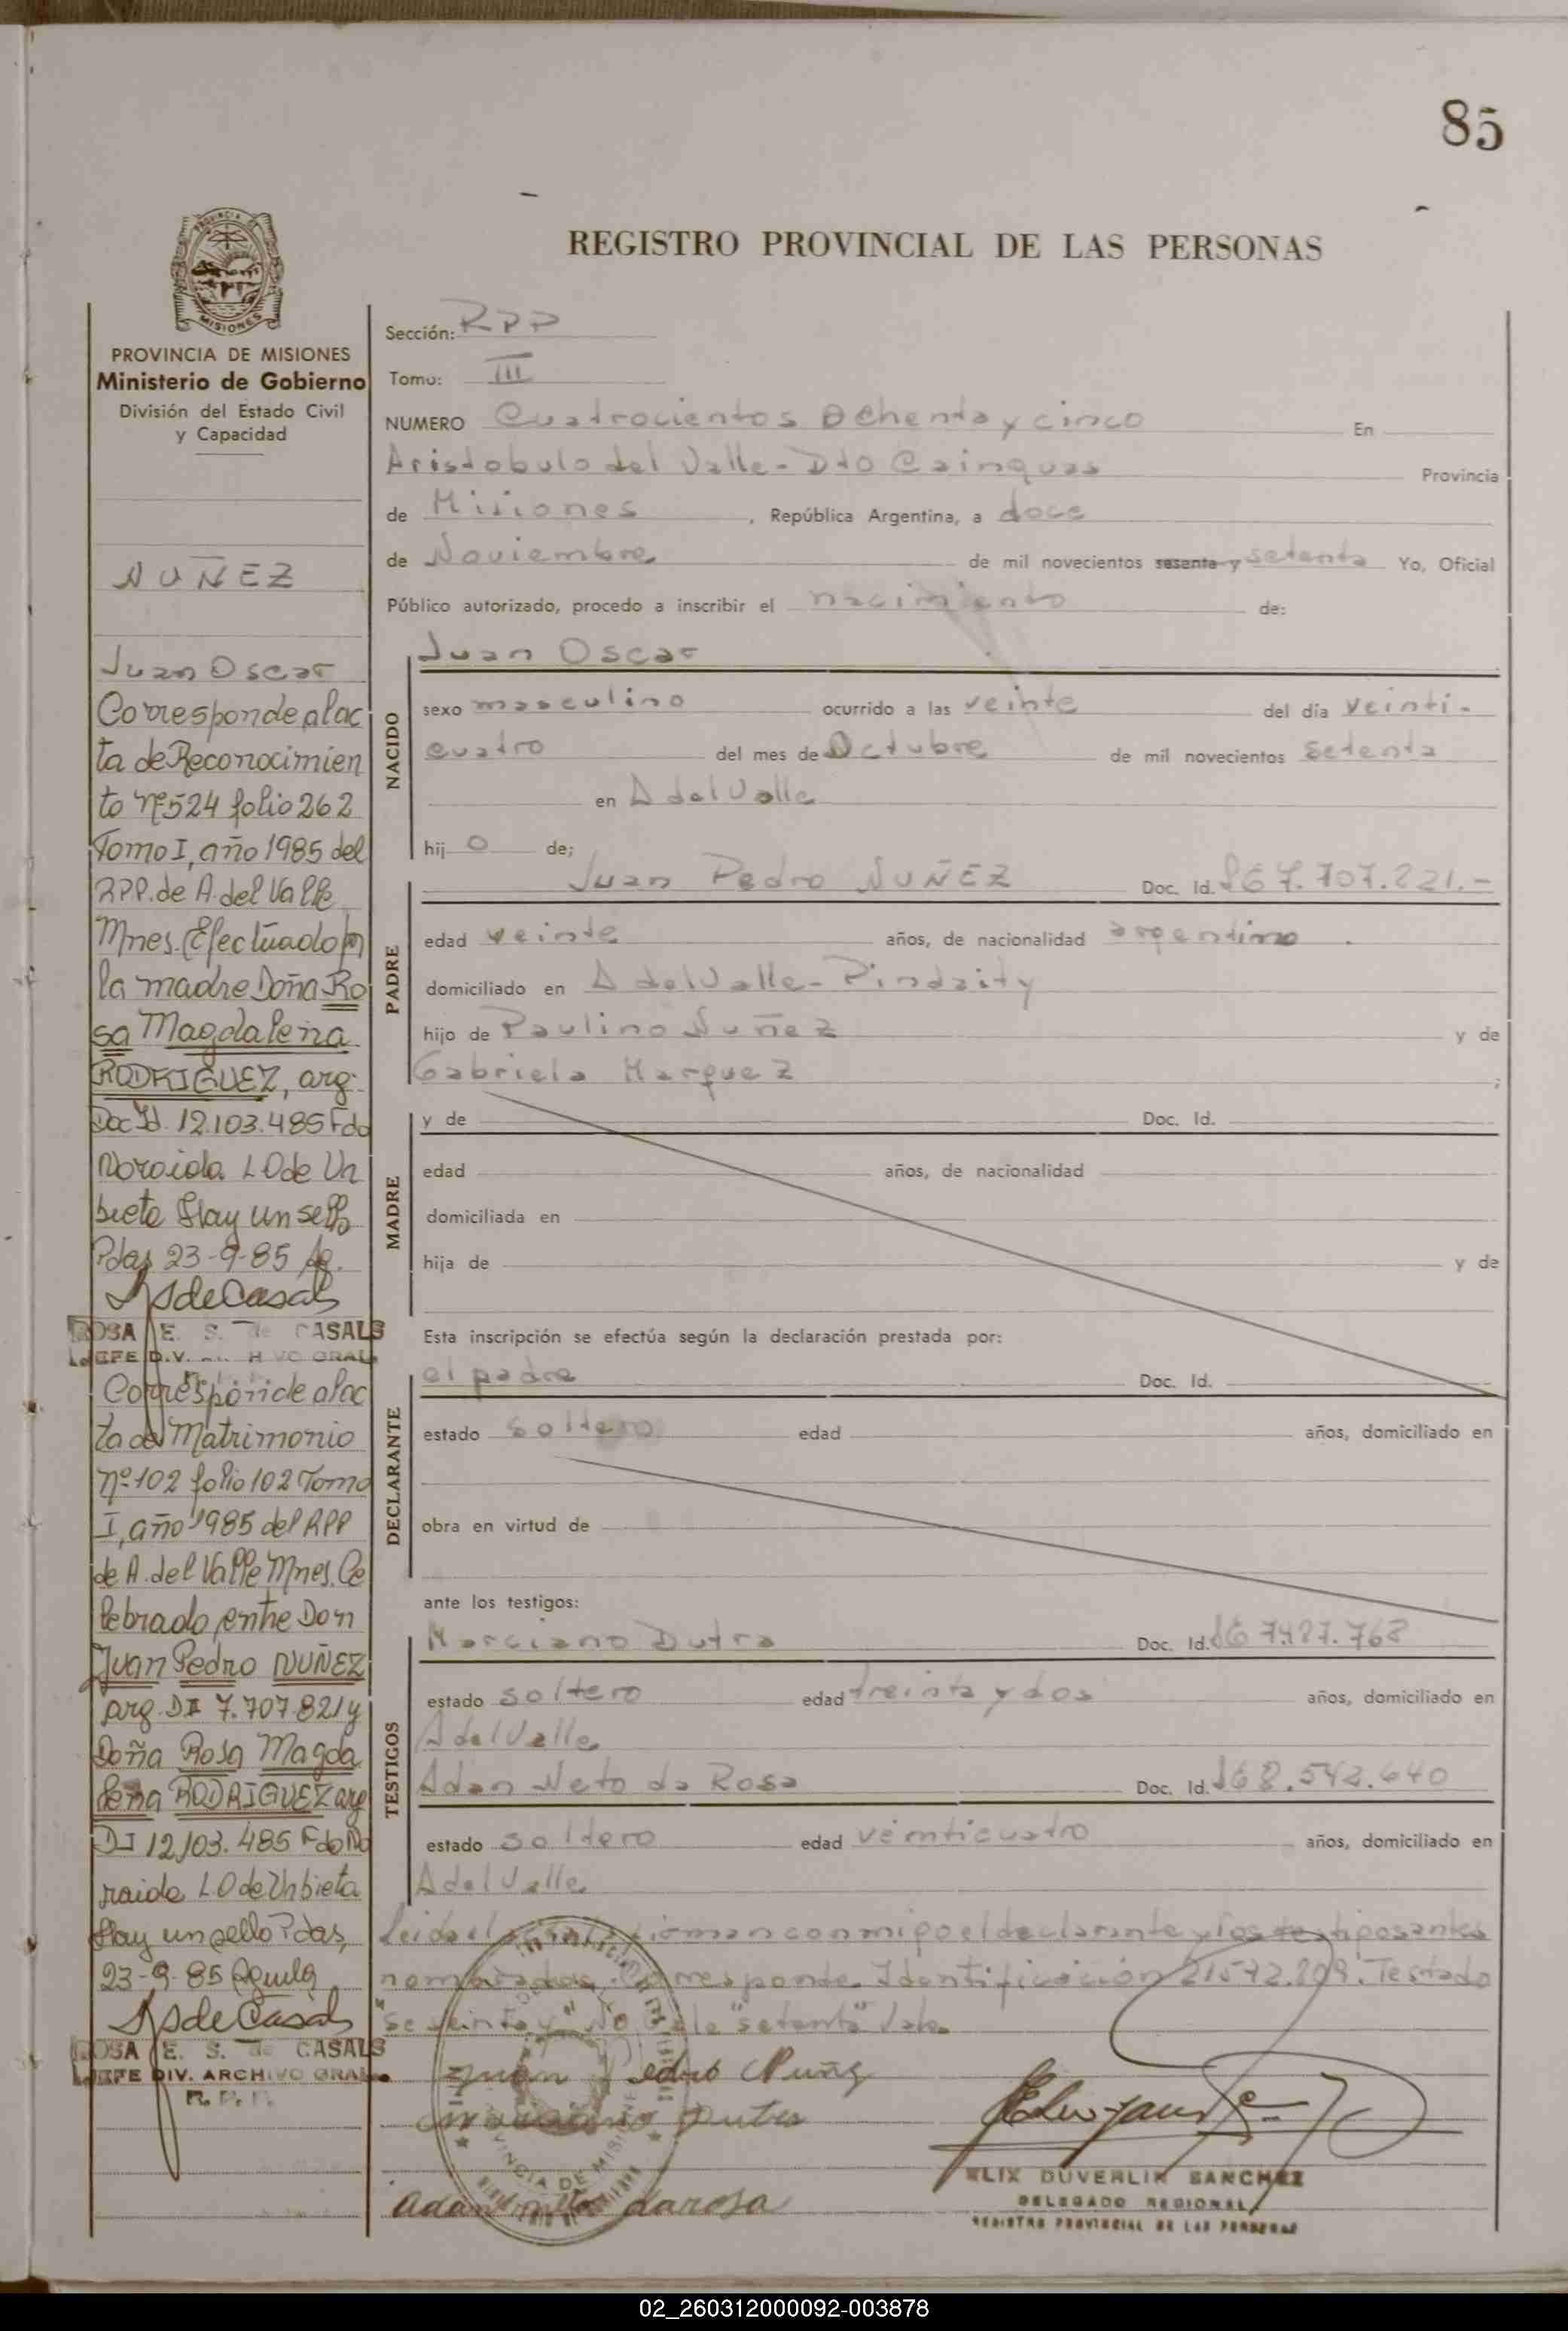 85
REGISTRO PROVINCIAL DE LAS PERSONAS
MISIONES
PROVINCIA DE MISIONES
Ministerio de Gobierno
División del Estado Civil
y Capacidad
NUÑEZ
Juan Oscar
Corresponde al ac
ta de Reconocimien
to Nº 524 folio 262
Tomo I, año 1985 del
RPP. de A. del Valle
Mnes. (Efectuado por
la madre Doña Ro
sa Magdalena
RODRIGUEZ, arg.
Doc Id. 12.103.485 Fdo
LO de Ur
bieta Hay un sello
Pdas 23-9-85
ROSA E. S. de CASALS
JEFE DIV. ARCHIVO GRAL.
Corresponde al ac
ta de Matrimonio
nº 102 folio 102 Tomo
I, año 1985 del RPP
de A. del Valle Mnes. Ce
lebrado entre Don
Juan Pedro NUÑEZ
arg. DI 7.707.821 y
Doña Rosa Magda
lena RODRIGUEZ arg
DI 12.103.485 Fdo No
raida LO de Urbieta
Hay un sello Pdas,
23-9-85
ROSA E. S. de CASALS
JEFE DIV. ARCHIVO GRAL.
R. P. P.
Sección: RPP
Tomo: III
NUMERO Cuatrocientos Ochenta y cinco En
Aristobulo del Valle - Dto Cainguas Provincia
de Misiones, República Argentina, a doce
de Noviembre de mil novecientos sesenta y setenta Yo, Oficial
Público autorizado, procedo a inscribir el nacimiento de:
NACIDO
Juan Oscar
sexo masculino ocurrido a las veinte del día veinti-
cuatro del mes de Octubre de mil novecientos setenta
en A del Valle
hijo de;
PADRE
Juan Pedro NUÑEZ Doc. Id. 7.707.221.-
edad veinte años, de nacionalidad argentino.
domiciliado en A del Valle - Pindaity
hijo de Paulino Nuñez y de
Gabriela Marquez ;
MADRE
y de Doc. Id.
edad años, de nacionalidad
domiciliada en
hija de y de
Esta inscripción se efectúa según la declaración prestada por:
DECLARANTE
el padre Doc. Id.
estado soltero edad años, domiciliado en
obra en virtud de
ante los testigos:
TESTIGOS
Marciano Dutra Doc. Id. 7.487.768
estado soltero edad treinta y dos años, domiciliado en
A del Valle
Adan Neto da Rosa Doc. Id. 8.542.640
estado soltero edad veinticuatro años, domiciliado en
A del Valle
Leida el acta firman conmigo el declarante y los testigos antes
nombrados. Corresponde Identificación 21572.209. Testado
"Sesenta y" No vale "setenta" Vale
Juan Pedro Nuñez
Marciano Dutra
Adan Neto darosa
PROVINCIA DE MISIONES
ELIX DUVERLIN SANCHEZ
DELEGADO REGIONAL
REGISTRO PROVINCIAL DE LAS PERSONAS
02_260312000092-003878